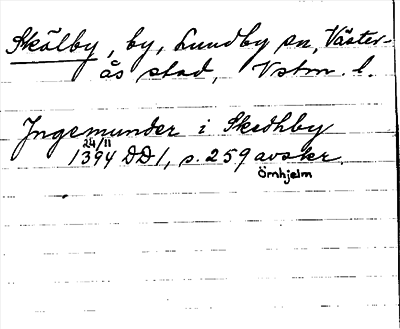 Skälby, by, Lundby sn, Väster-
ås stad, Vstm. l.
Ingemunder i Skedhby
24/11
1394 DD1, s. 259 avskr.
Örnhjelm